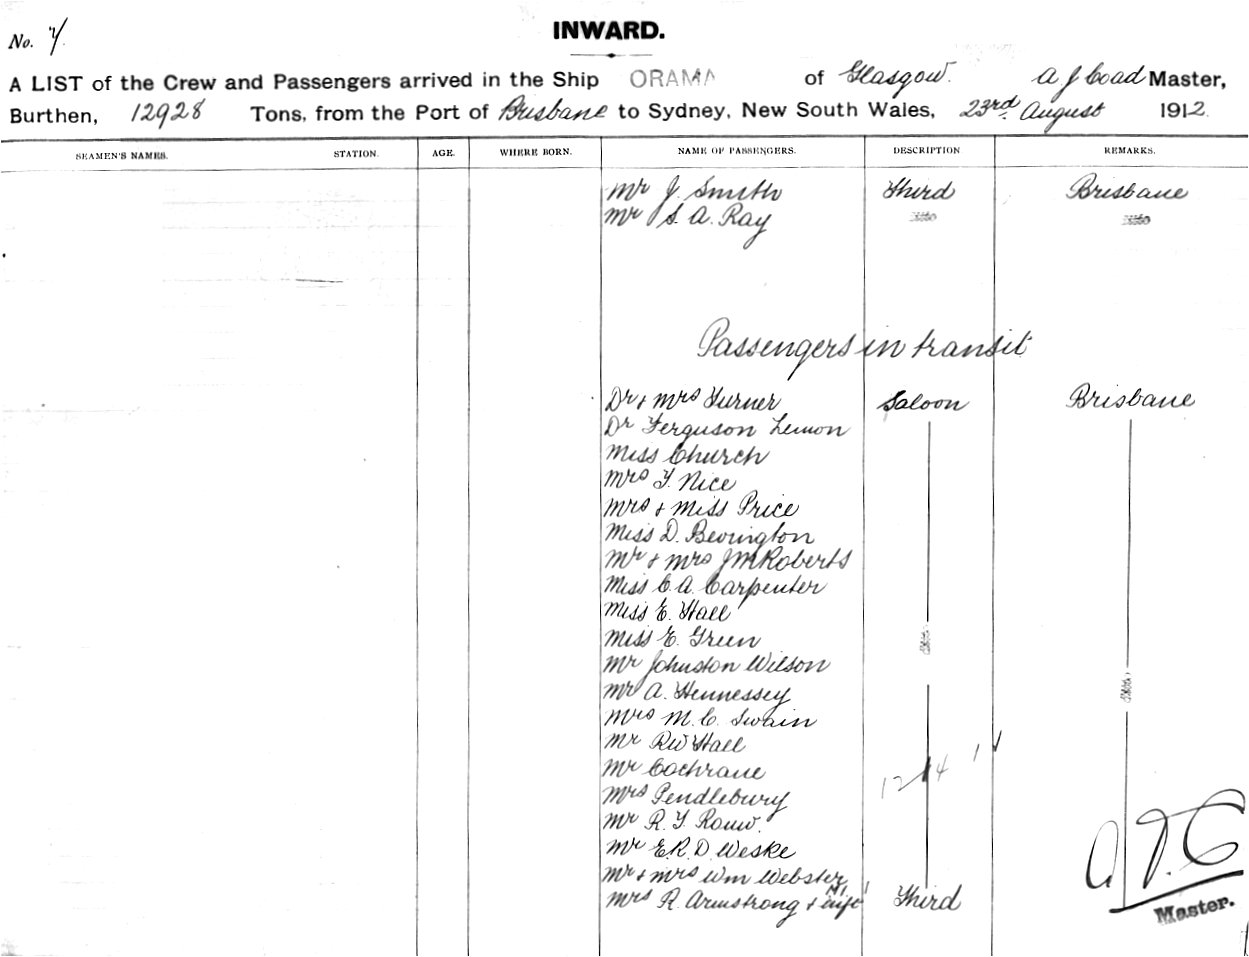 No. 7.
INWARD.
A LIST of the Crew and Passengers arrived in the Ship ORAMA of Glasgow. A J Coad Master,
Burthen, 12928 Tons, from the Port of Brisbane to Sydney, New South Wales, 23rd. August 1912.
SEAMEN'S NAMES. STATION. AGE. WHERE BORN. NAME OF PASSENGERS. DESCRIPTION REMARKS.
Mr J. Smith Third Brisbane
Mr S. A. Ray ditto ditto
Passengers in transit
Dr & Mrs Turner Saloon Brisbane
Dr Ferguson Lemon
Miss Church
Mrs Y. Nice
Mrs & Miss Price
Miss D. Bevington
Mr & Mrs J M Roberts
Miss C. A. Carpenter
Miss E. Hall
Miss E. Green
Mr Johnston Wilson
Mr A. Hennessey
Mrs M. C. Swain
Mr R W Hall
Mr Cochrane
Mrs Pendlebury
Mr R. Y.
Mr E. R. D. Weske
Mr & Mrs Wm Webster
Mrs R. Armstrong & Third
Master.